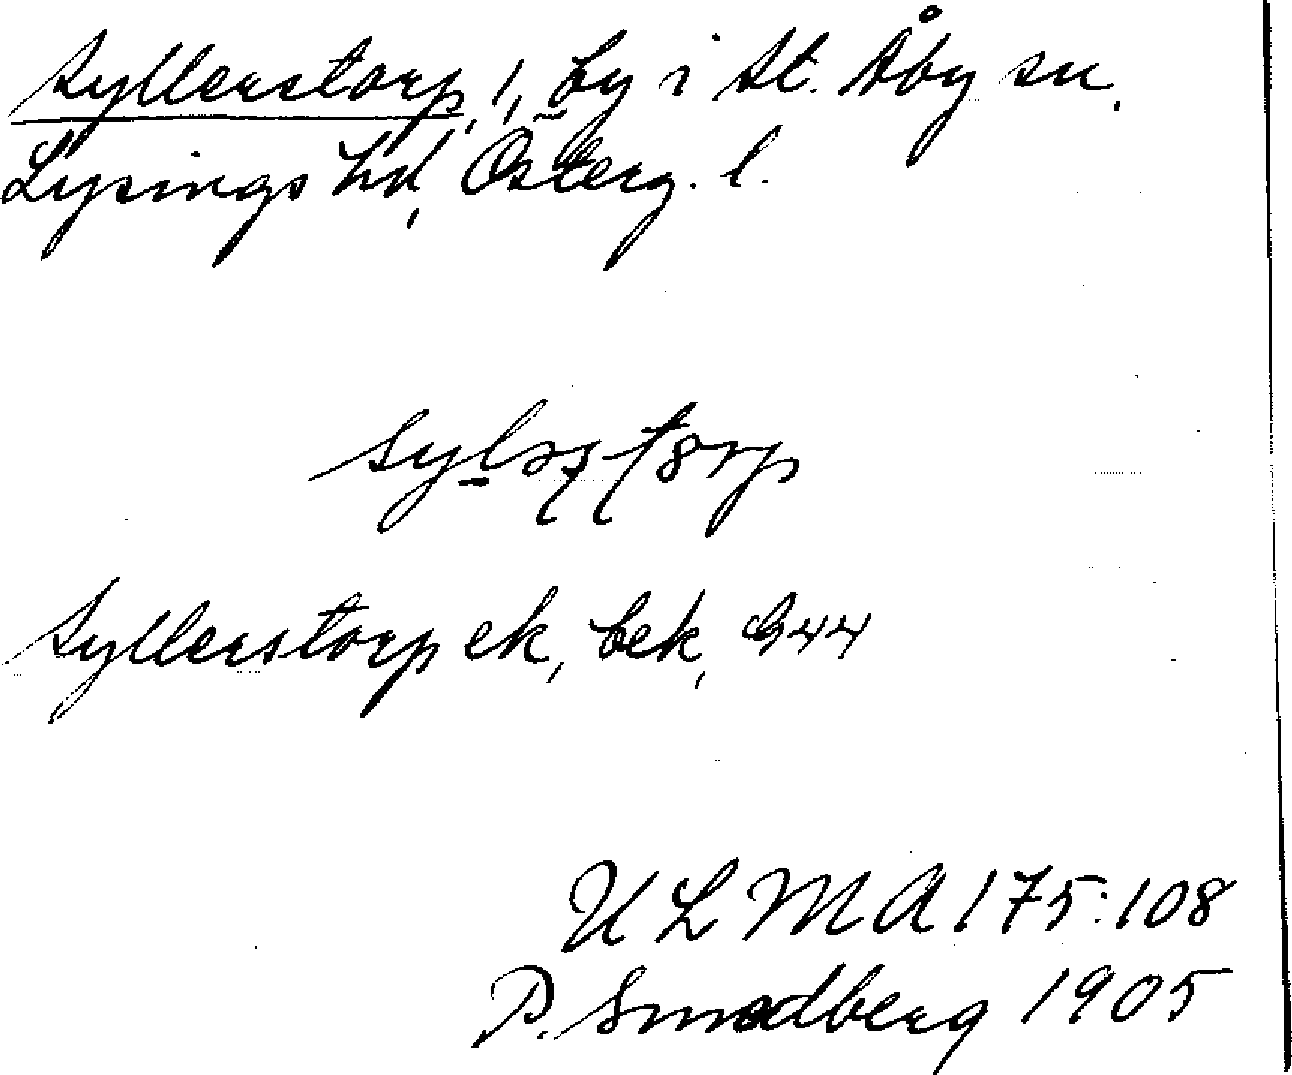 Syllerstorp, 1, by i St. Åby sn.
Lysings hd, Österg. l.
Syllerstorp ek, bek, G44
ULMA 175:108
P. Smedberg 1905